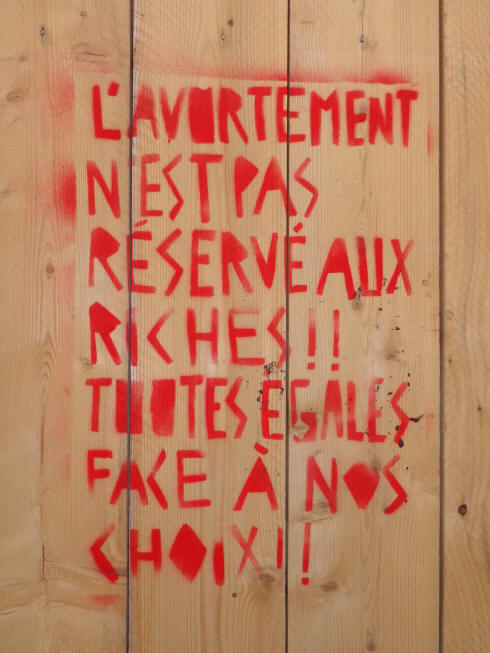 L'AVORTEMENT
N'EST PAS
RÉSERVÉ AUX
RICHES!!
TOUTES ÉGALES
FACE À NOS
CHOIX!!